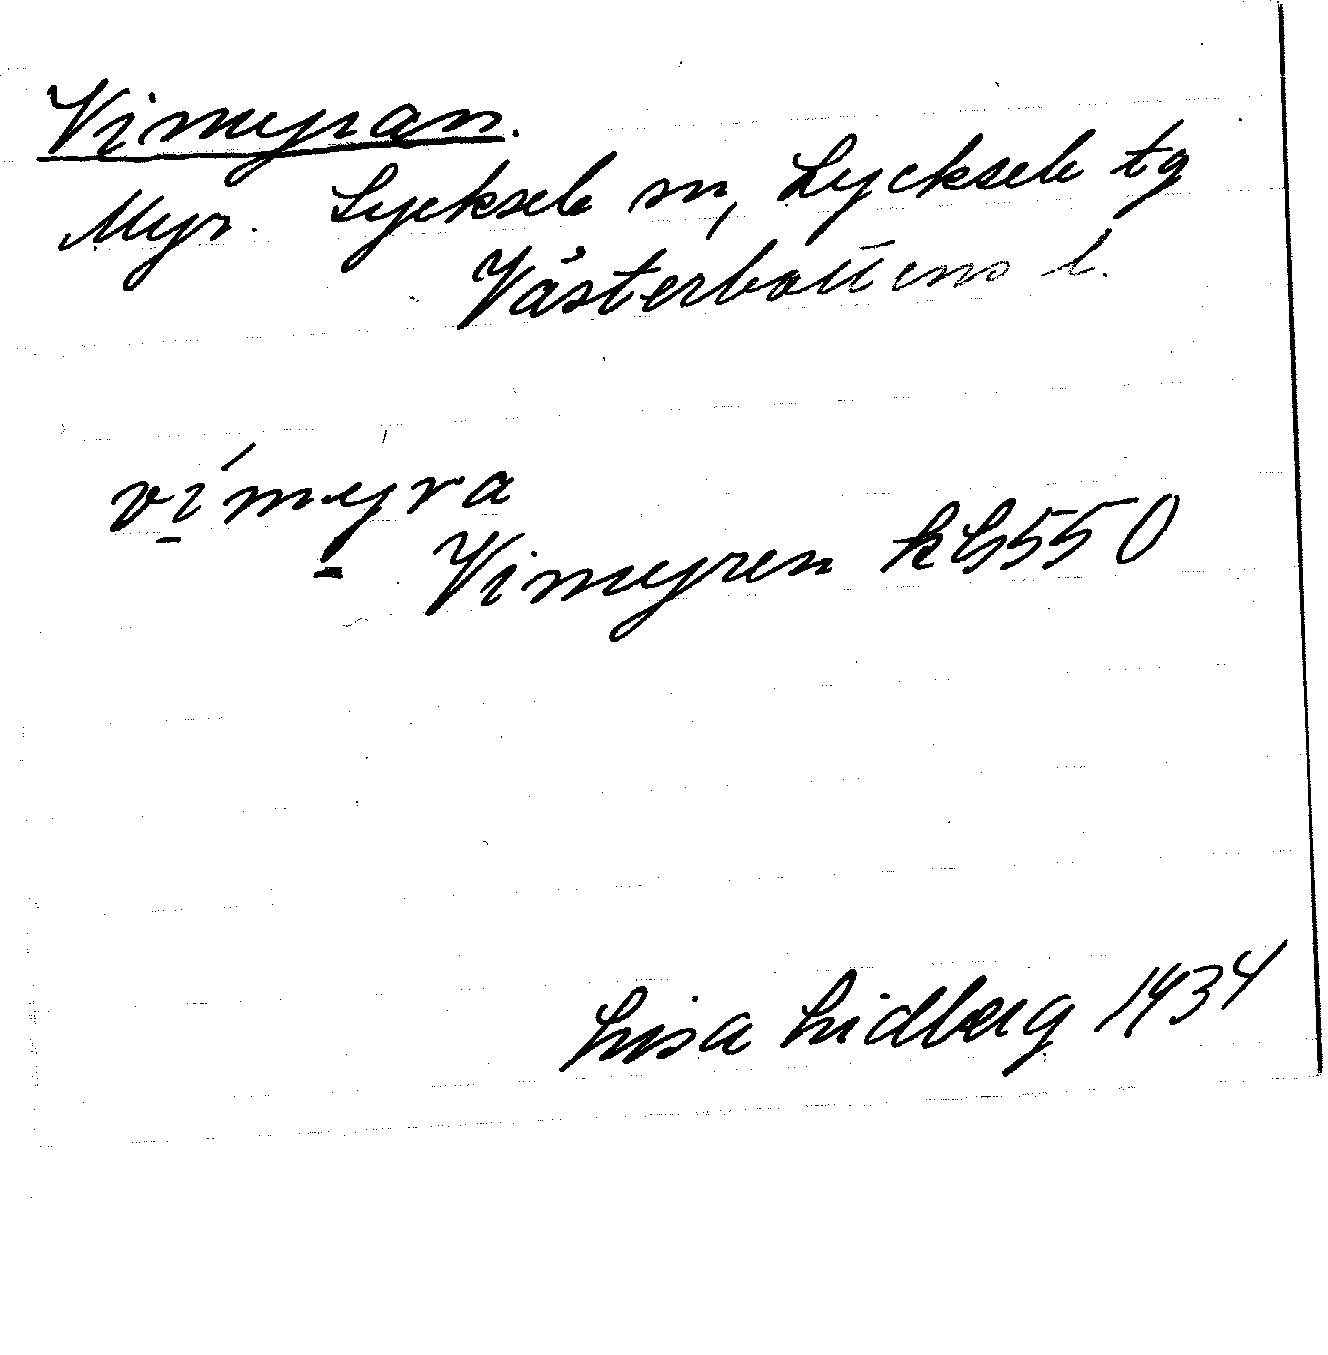 Vimyran.
Myr. Lycksele sn, Lycksele tg
Västerbottens l.
vímyra
Vimyren kb550
Lisa Lidberg 1934